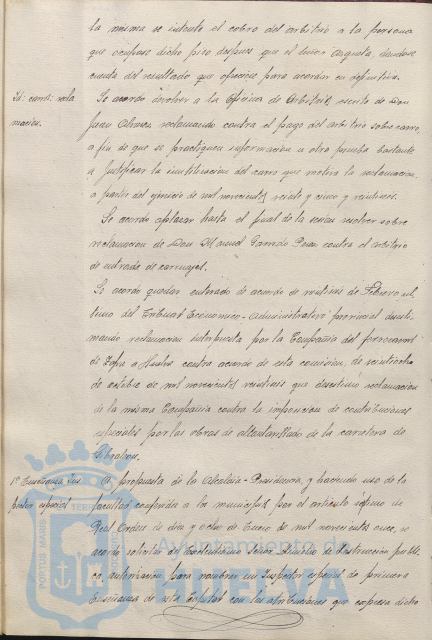 la misma se intente el cobro del arbitrio a la persona
que ocupase dicho piso despues que el Señor Argueta, dandose
cuenta del resultado que ofreciere para acordar en definitiva.
Id: carros: recla
macion.
Se acordó devolver a la Oficina de Arbitrios, escrito de Don
Juan reclamando contra el pago del arbitrio sobre carros,
a fin de que se practiquen informacion u otra prueba bastante
a justificar la inutilizacion del carro que motiva la reclamacion,
a partir del ejercicio de mil novecientos veinte y cinco y veintiseis.
Se acordó aplazar hasta el final de la sesion resolver sobre
reclamacion de Don Manuel Garrido Perez contra el arbitrio
de entrada de carruajes.
Se acordó quedar enterado de acuerdo de veintiseis de Febrero ul
timo del Tribunal Economico-administrativo provincial desesti
mando reclamacion interpuesta por la Compañia del ferrocarril
de Zafra a Huelva contra acuerdo de esta comision, de veintiocho
de octubre de mil novecientos veintiseis que desestimó reclamacion
de la misma Compañia contra la imposicion de contribuciones
especiales por las obras de alcantarillado de la carretera de
Gibraleon.
1ª Enseñanza: Ins
pector especial
A propuesta de la Alcaldia-Presidencia, y haciendo uso de la
facultad conferida a los municipios por el articulo septimo de
Real Orden de diez y ocho de Enero de mil novecientos once, se
acordó solicitar del Excelentisimo Señor Ministro de Instruccion publi
ca, autorizacion para nombrar un Inspector especial de primera
Enseñanza de esta Capital con las atribuciones que expresa dicho
Ayuntamiento de
HUELVA
PORTUS MARIS